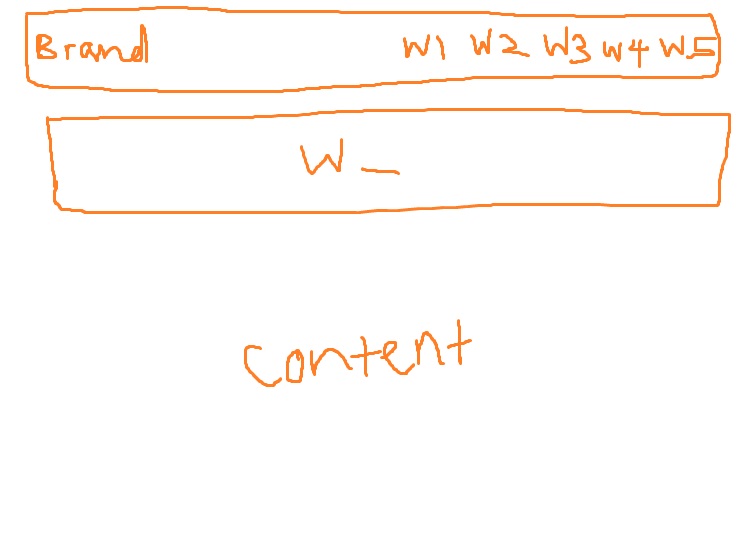 Brand W1 W2 W3 W4 W5
W_
Content